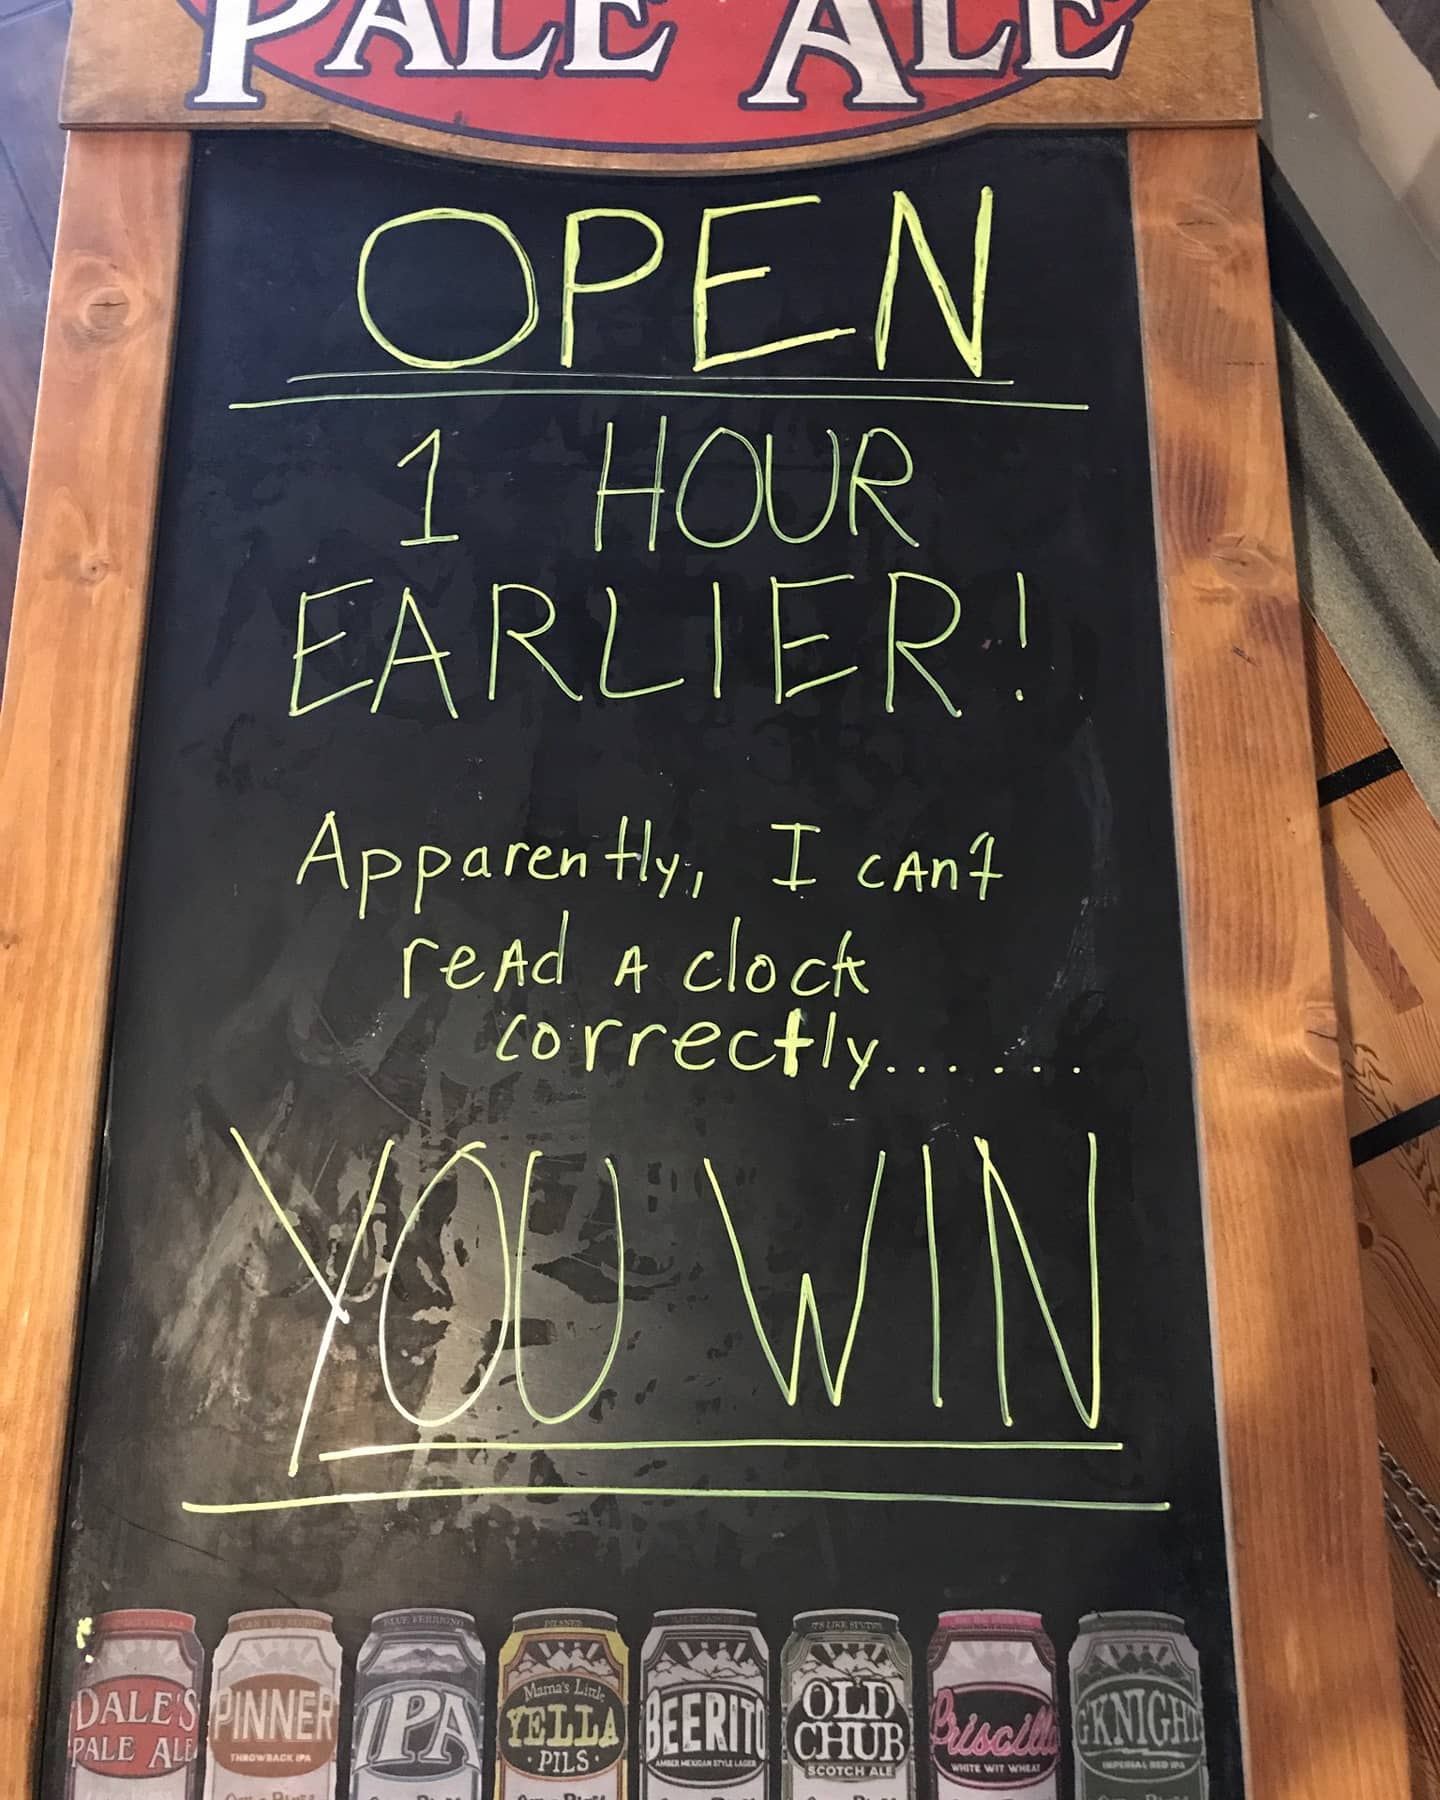 PALE ALE
OPEN
1 HOUR
EARLIER!
Apparently, I cAn't
reAd A clock
correctly.......
YOU WIN
DALE'S
PALE ALE
PINNER
THROWBACK IPA
IPA
PILSNER
Mama's Little
YELLA
PILS
BEERITO
AMBER MEXICAN STYLE LAGER
OLD
CHUB
SCOTCH ALE
Priscilla
WHITE WIT WHEAT
G'KNIGHT
IMPERIAL RED IPA